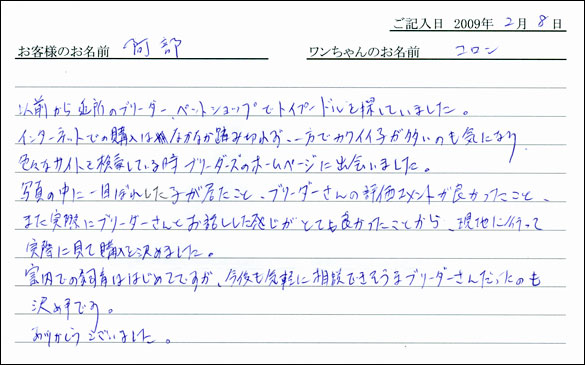 ご記入日 2009年 2月 8日
お客様のお名前 阿部 ワンちゃんのお名前 コロン
以前から近所のブリーダー、ペットショップでトイプードルを探していました。
インターネットでの購入はなかなか踏み切れず、一方でカワイイ子が多いのも気になり
色々なサイトを検索している時ブリーダーズのホームページに出会いました。
写真の中に一目ぼれした子が居たこと、ブリーダーさんの評価コメントが良かったこと、
また実際にブリーダーさんとお話しした感じがとても良かったことから、現地に行って
実際に見て購入を決めました。
室内での飼育ははじめてですが、今後も気軽に相談できそうなブリーダーさんだったのも
決め手です。
ありがとうございました。